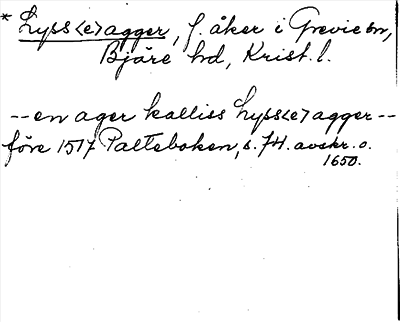 * Lyss<e>agger, f. åker i Grevie sn,
Bjäre hd, Krist. l.
-- en ager kalliss Lyss<e>agger --
före 1517 Palteboken, s. 74. avskr. o.
1650.